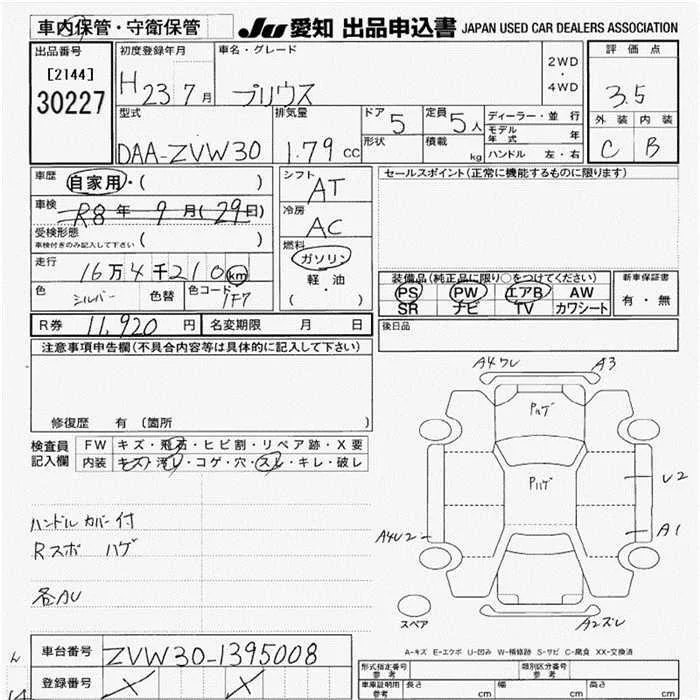 車内保管・守衛保管 JU 愛知 出品申込書 JAPAN USED CAR DEALERS ASSOCIATION
出品番号 初度登録年月 車名・グレード 2WD ・ 4WD 評価点
[2144] H 23 7月 プリウス 3.5
30227
型式 排気量 ドア 5 定員 5人 ディーラー・並行 外装 内装
モデル年式 年
DAA-ZVW30 1.79 cc 形状 積載 kg ハンドル 左・右 C B
車歴 自家用・( ) シフト AT セールスポイント(正常に機能するものに限ります)
車検 R8年 9月(29日) 冷房 AC
受検形態 ( )
車検付きのみ記入して下さい
燃料 ガソリン
走行 16万4千210km 軽油
装備品(純正品に限り○をつけてください) 新車保証書
色 シルバー 色替 色コード 1F7 ( )
PS PW エアB AW 有・無
SR ナビ TV カワシート
R券 11,920円 名変期限 月 日 後日品
注意事項申告欄(不具合内容等は具体的に記入して下さい)
A4ワレ A3
Pハゲ
修復歴 有 (箇所 )
検査員記入欄 FW キズ・飛石・ヒビ割・リペア跡・X要
内装 キズ・汚レ・コゲ・穴・スレ・キレ・破レ
Pハゲ
U2
ハンドルカバー付
A4U2 A1
Rスポ ハゲ
各AU
スペア
A2ズレ
A-キズ E-エクボ U-凹み W-補修跡 S-サビ C-腐食 XX-交換済
車台番号 ZVW30-1395008
型式指定番号 参考 類別区分番号 参考
登録番号 X X
車庫証明用 参考 長さ cm 幅 cm 高さ cm